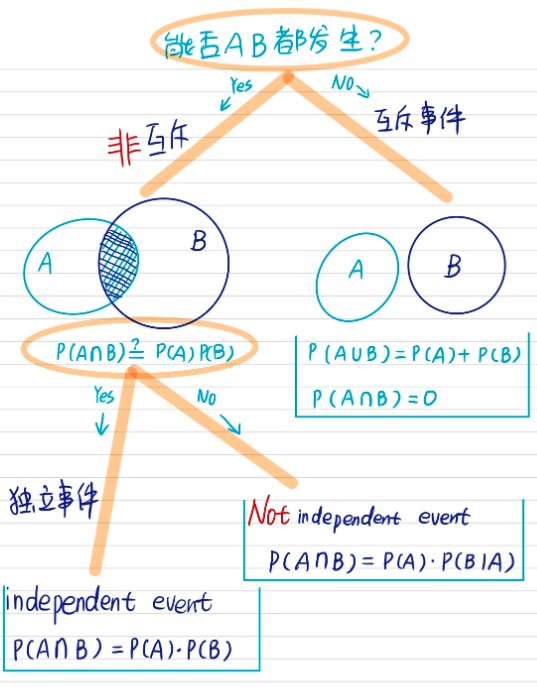 能否AB都发生?
Yes
NO
非互斥
互斥事件
A
B
A
B
P(A∩B)≟P(A)P(B)
P(A∪B)=P(A)+P(B)
P(A∩B)=0
Yes
No
独立事件
Not independent event
P(A∩B)=P(A)·P(B|A)
independent event
P(A∩B)=P(A)·P(B)